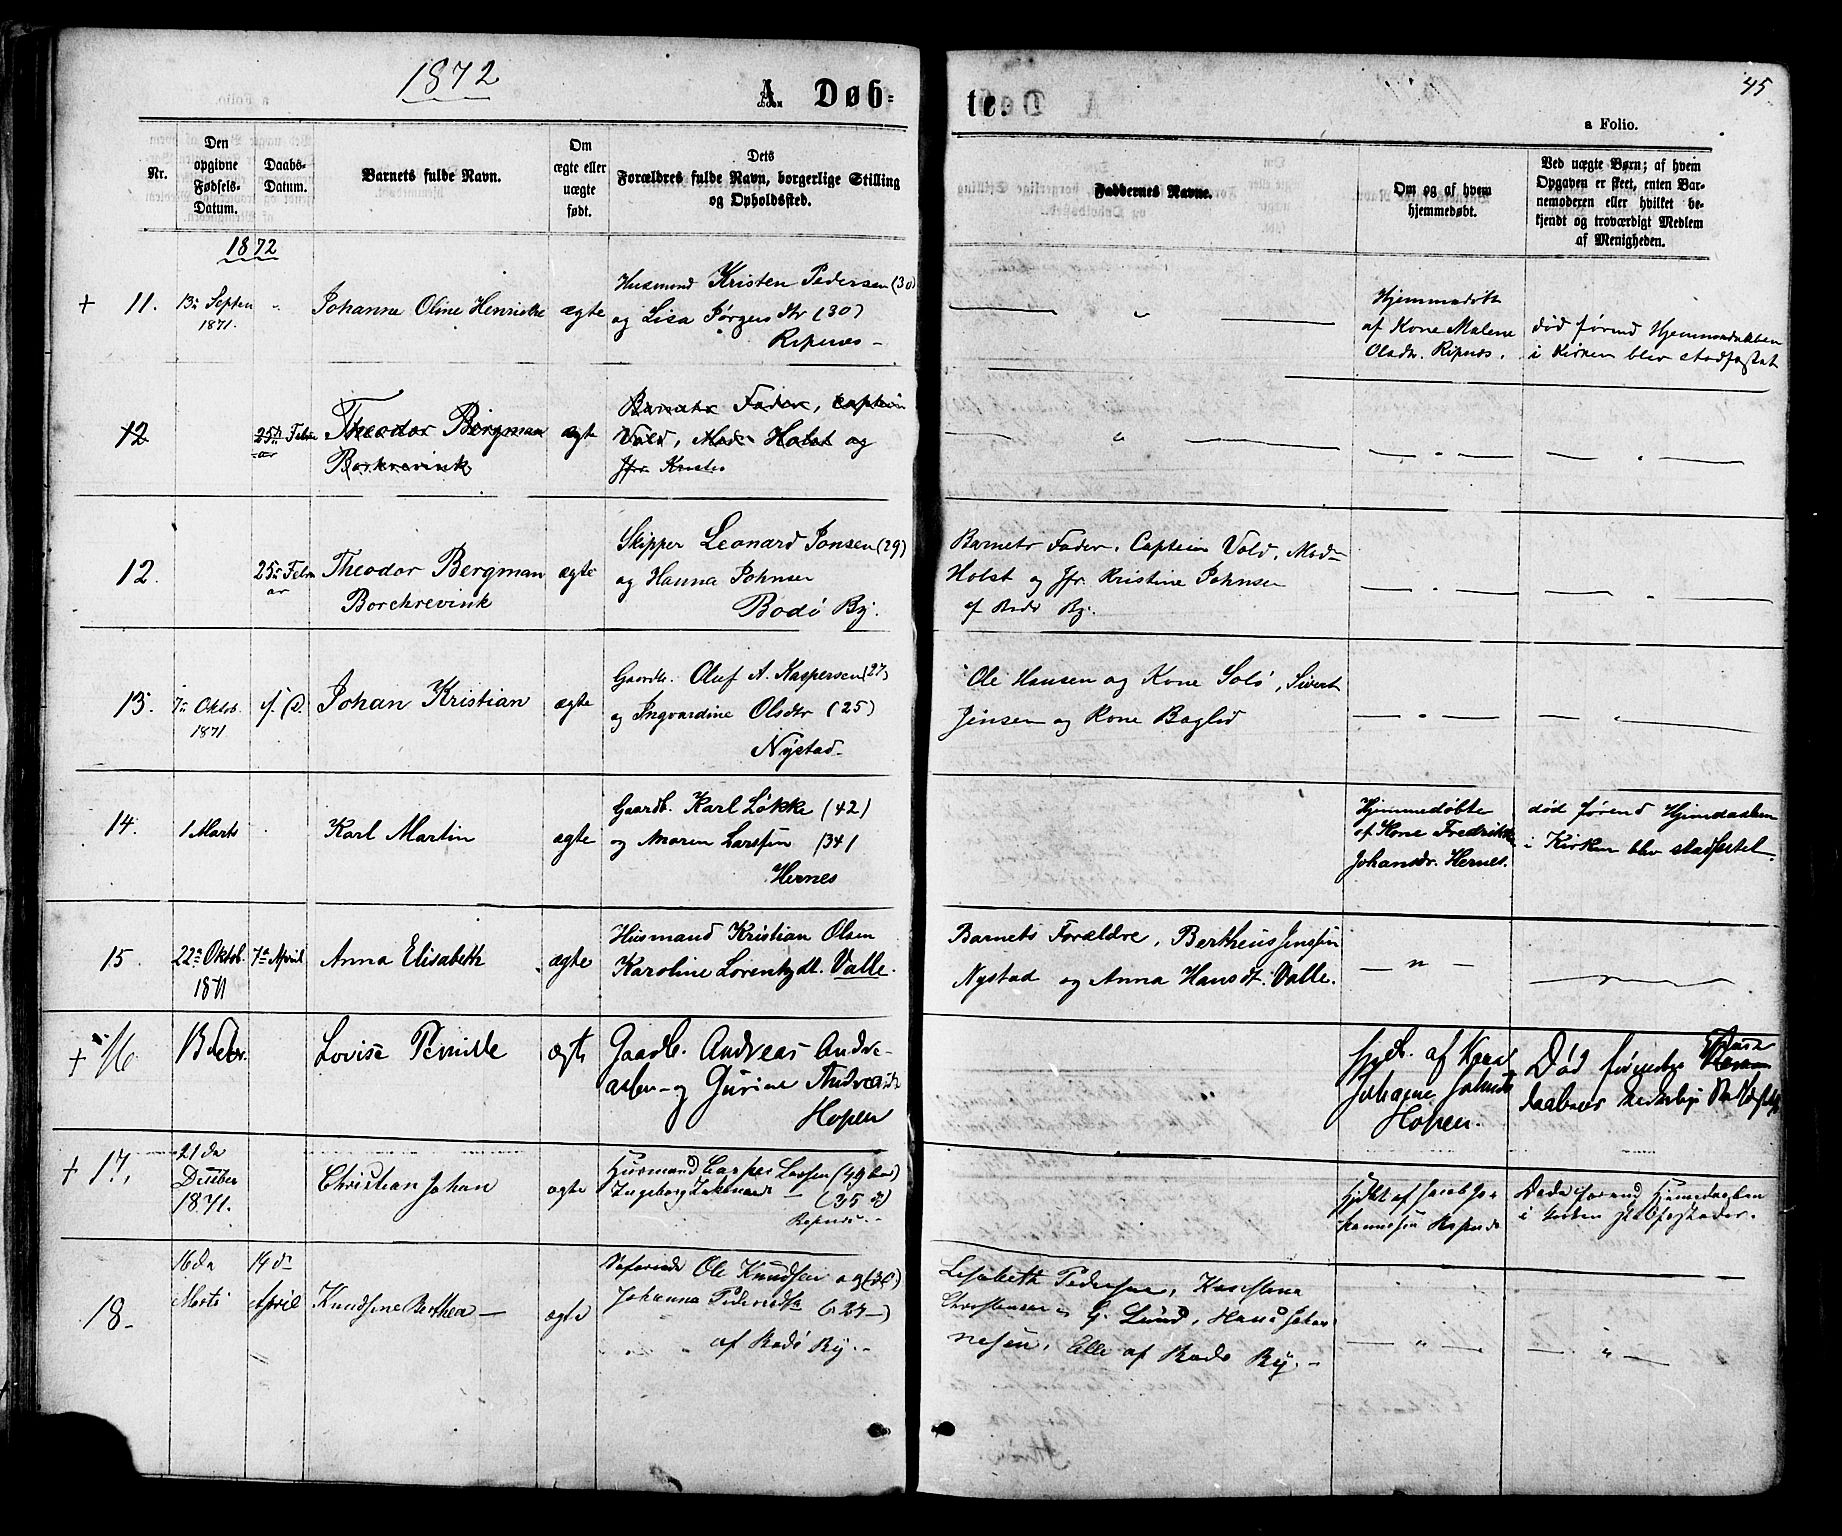 1872
A. Døb=
te.
45
a Folio.
Nr.
Den
opgivne
Fødsels-
Datum.
Daabs-
Datum.
Barnets fulde Navn.
Om
ægte eller
uægte
født.
Dets
Forældres fulde Navn, borgerlige Stilling
og Opholdssted.
Faddernes Navne.
Om og af hvem
hjemmedøbt.
Ved uægte Børn; af hvem
Opgaven er skeet, enten Bar-
nemoderen eller hvilket be-
kjendt og troværdigt Medlem
af Menigheden.
1872
+ 11.
13de Septem
1871.
Johanna Oline Henriette
ægte
Husmand Kristen Pedersen (30)
og Lisa Jørgensdtr (30)
Ripnes -
Hjemmedøbt
af Kone Malene
Olsdr. Ripnes.
død førend Hjemmedaaben
i Kirken blev stadfæstet
12
25de Febru
ar
Theodor Bergman
Borchrevink
ægte
Barnets Fader, Captein
Vold, Mad. Holst og
Jfr. Kristi
12.
25de Febru
ar
Theodor Bergman
Borchrevink
ægte
Skipper Leonard Jonsen (29)
og Hanna Johnsen
Bodø By.
Barnets Fader, Captein Vold, Mad.
Holst og Jfr. Kristine Johnsen
af Bodø By.
13.
7de Oktob.
1871.
s. D.
Johan Kristian
ægte
Gaardb. Oluf A. Kaspersen (27)
og Ingvardine Olsdtr (25)
Nystad
Ole Hansen og Kone Solø, Sivert
Jensen og Kone Boglid
14.
1 Marts
Karl Martin
ægte
Gaardb. Karl Løkke (42)
og Maren Larssen (34)
Hernes
Hjemmedøbte
af Kone Fredrikke
Johansdr. Hernes.
død førend Hjemdaaben
i Kirken blev stadfestet.
15.
22de Oktob.
1871
7de April
Anna Elisabeth
ægte
Husmand Kristian Olsen
Karoline Lorentzdt. Valle.
Barnets Forældre, Bertheus Jenssen
Nystad og Anna Hansdt. Valle.
+ 16
Lovise Pernille
ægte
Gaardb. Andreas Andre-
asen og Gurine Andreasdr
Hopen
Hjdt. af Kone
Johanne
Hopen.
Død førend
daabens
+ 17.
21de
Decbr
1871.
Christian Johan
ægte
Husmand Casper Larsen (49)
Ingeborg (35)
Ripnes.
Hjdbt af Jacob Jo-
hannesen Ripnes
Døde førend Hjemmedaaben
i Kirken stadfæstedes.
18.
16de
Marts
14de
April
Knudsine Berthea
ægte
Søfarende Ole Knudsen
Johanna Pedersdtr (27)
af Bodø By.
Lisabeth Pedersen,
Christensen G. Lund, Hans Johan
nesen, Alle af Bodø By.